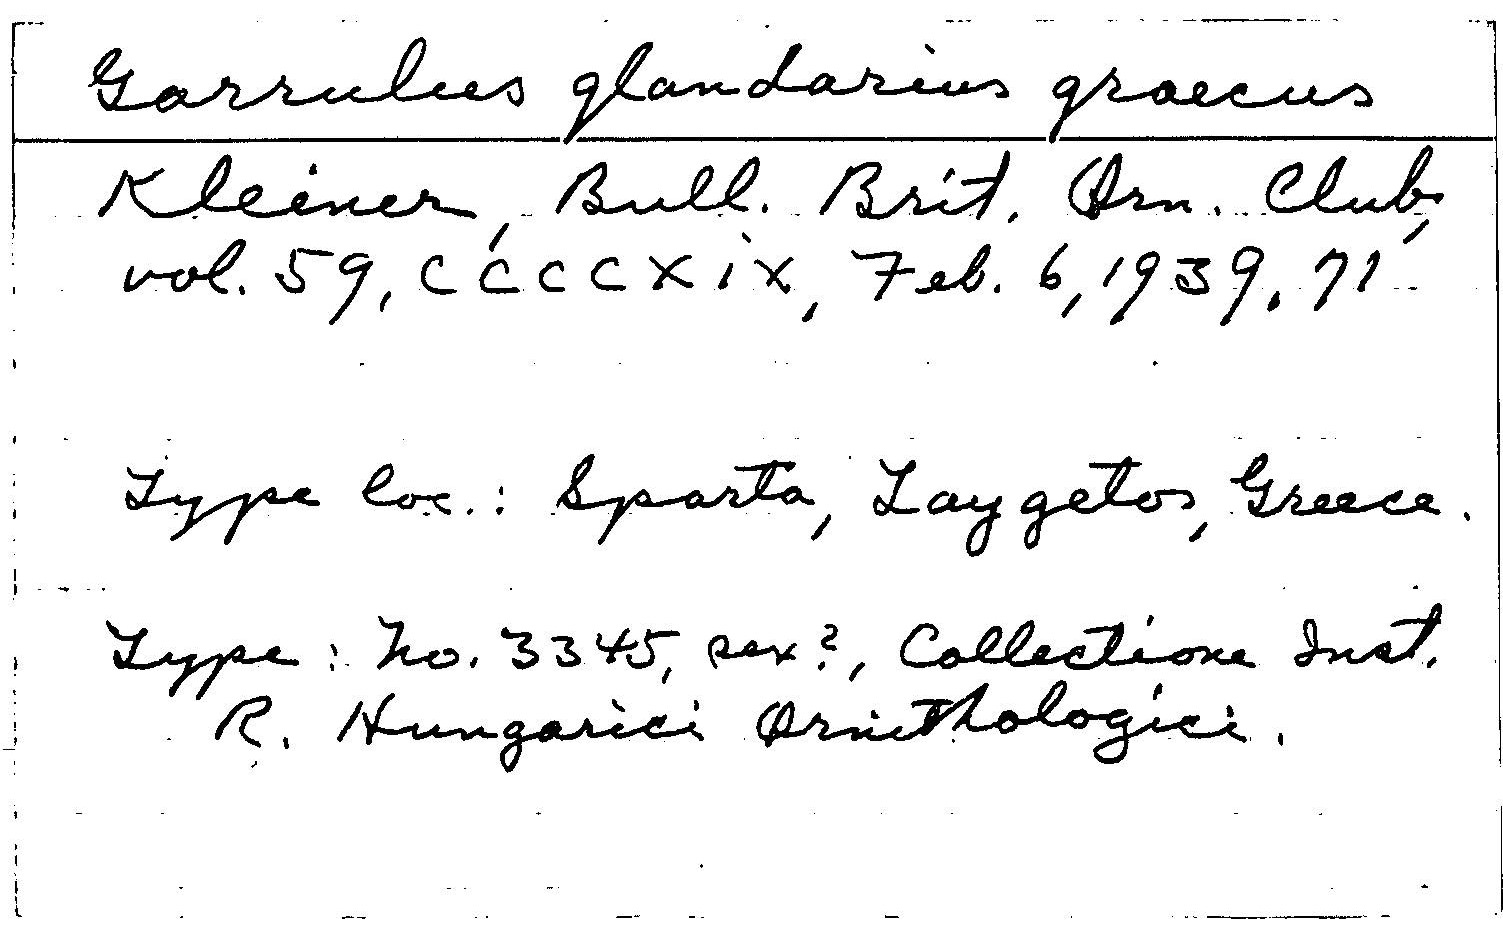 Garrulus glandarius graecus
Kleiner, Bull. Brit. Orn. Club,
vol. 59, ccccxix, Feb. 6, 1939, 71
Type loc.: Sparta, Taygetos, Greece.
Type: No. 3345, sex?, Collectione Inst.
R. Hungarici Ornithologici.